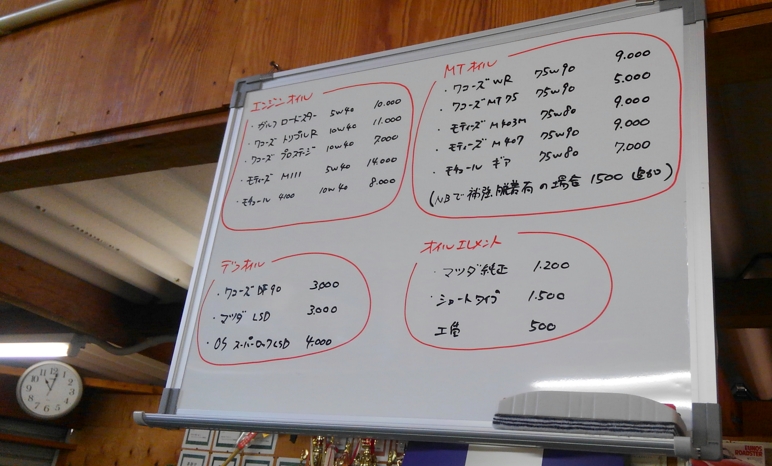 エンジンオイル
・ガルフ ロードスター 5W40 10.000
・ワコーズ トリプルR 10W40 11.000
・ワコーズ プロステージ 10W40 7000
・モティーズ M111 5W40 14.000
・モチュール 4100 10W40 8.000
MTオイル
・ワコーズWR 75W90 9.000
・ワコーズMT75 75W90 5.000
・モティーズM403M 75W80 9.000
・モティーズM407 75W90 9.000
・モチュール ギア 75W80 7.000
(NBで補強脱着有の場合 1500追加)
デフオイル
・ワコーズDF90 3.000
・マツダ LSD 3.000
・OS スーパーロックLSD 4.000
オイルエレメント
・マツダ純正 1.200
・ショートタイプ 1.500
工賃 500